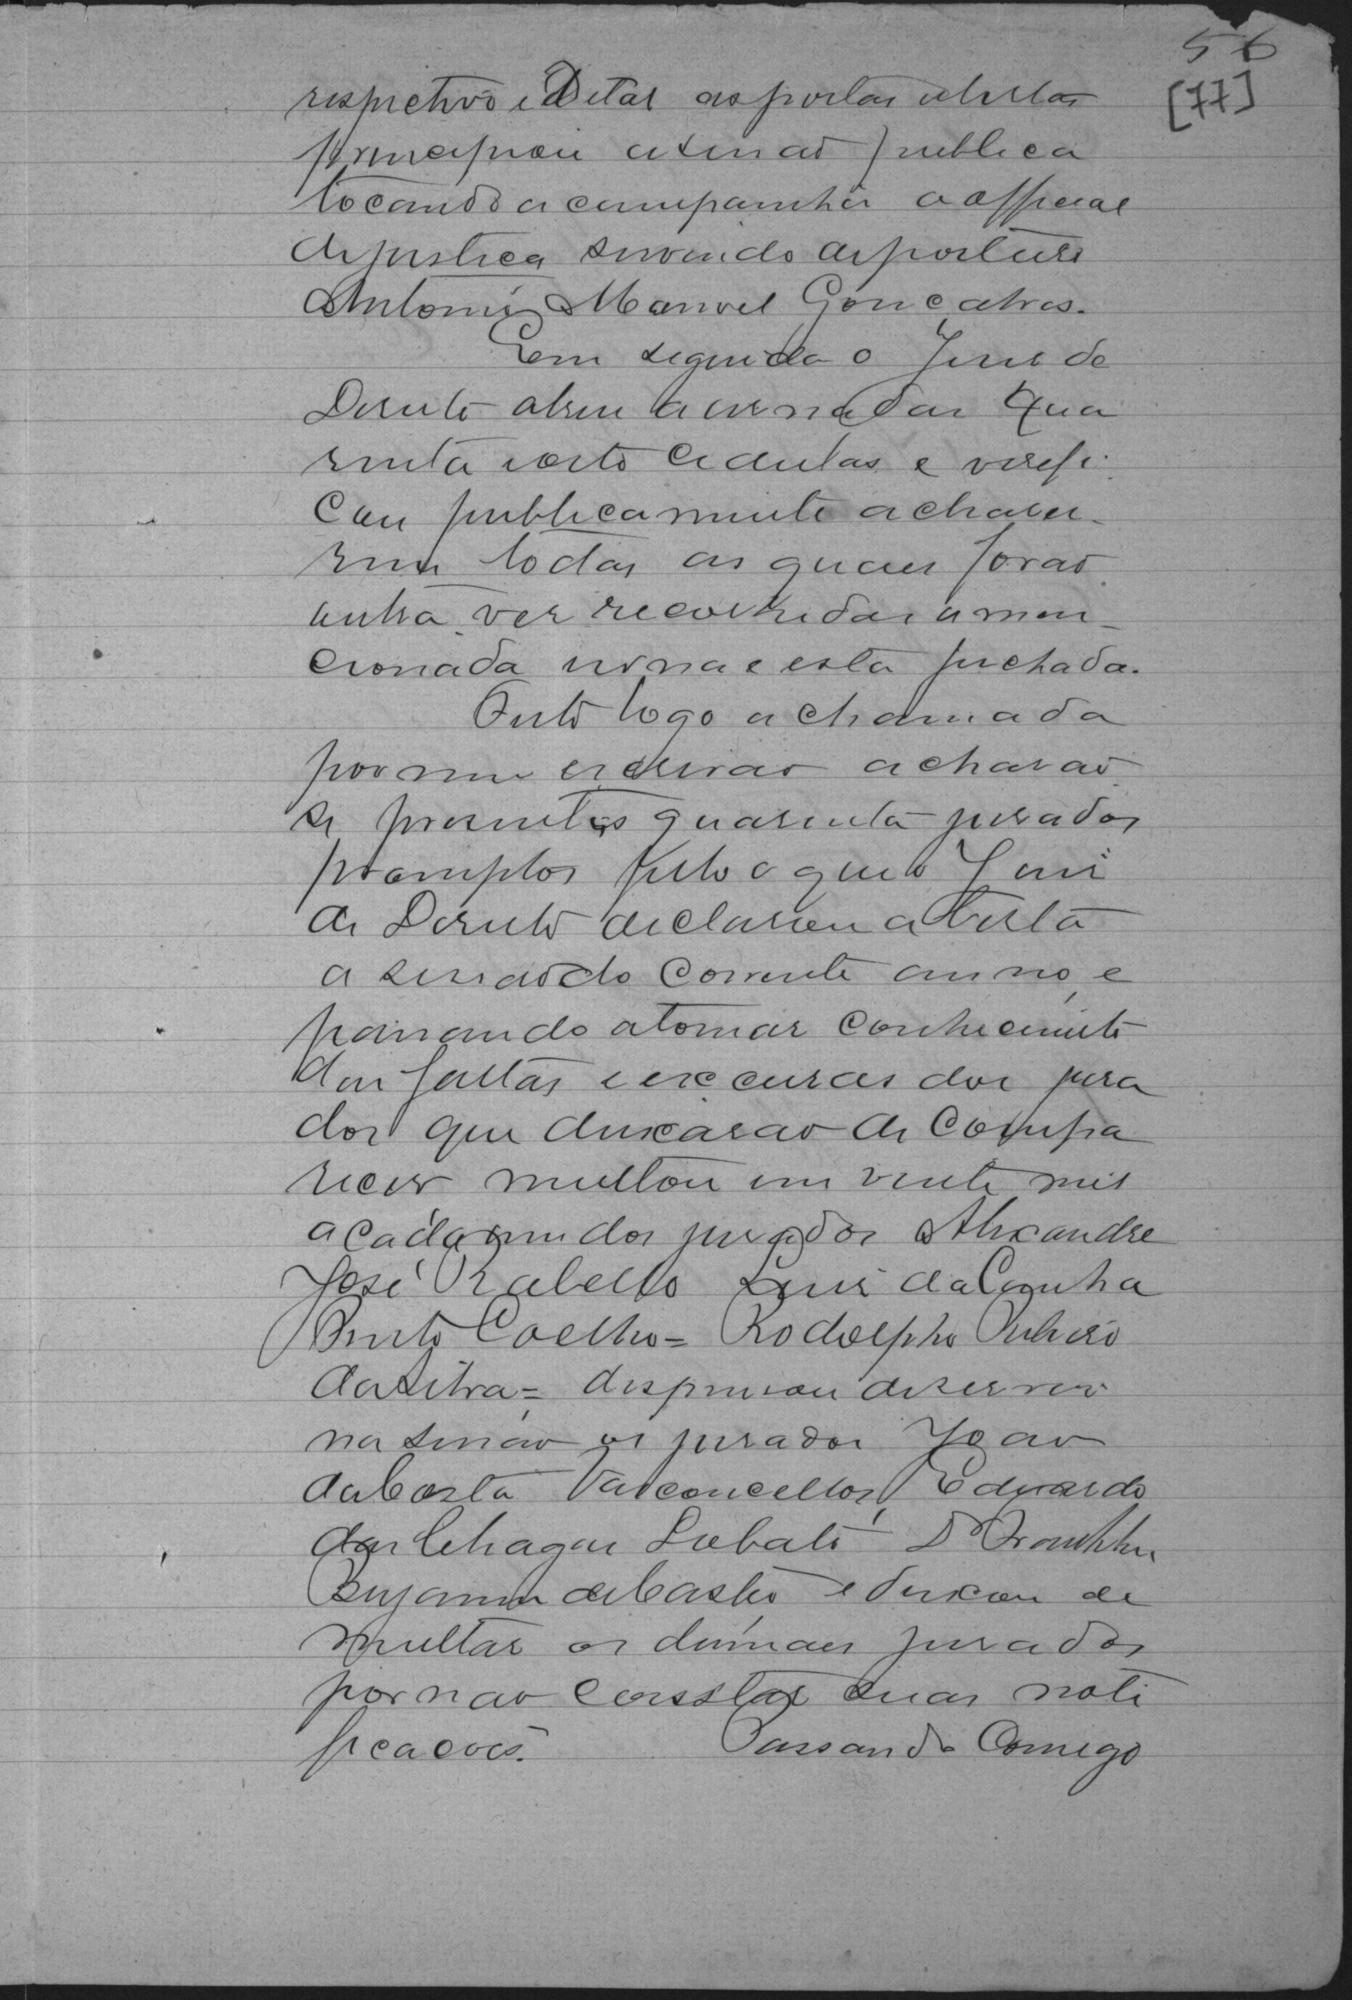 56
[77]
respectivo eDital as portas abertas
principiou a sessaõ publica
tocando a campainha o official
de justiça servindo de porteiro
Antonio Manoel Gonçalves.
Em seguida o Juis de
Direito abrio a urna das qua
renta e oito cedulas e verifi
cou publicamente acharem
todas as quaes foraõ
outra ves recolhidas a men-
cionada urna e esta fechada.
Feito logo a chamada
por mim escrivaõ acharaõ
se presentes quarenta jurados
promptos pelo o que o Juis
de Direito declarou aberta
a sessaõ do corrente anno, e
passando a tomar conhecimento
das faltas e excusas dos jura
dos que deixaraõ de compa
recer multou em vinte mil
a cada um dos jurados Alexandre
José Rabello Luis da Cunha
Pinto Coelho = Rodolpho Pinheiro
da Silva = dispensou de servir
na sessaõ os jurados Joaõ
da Costa Vasconcellos, Eduardo
das Chagas Lobato Dr Franklin
Benjamin de Castro e deixou de
multar os demaes jurados
por naõ constar suas noti
ficações. Passando Comigo